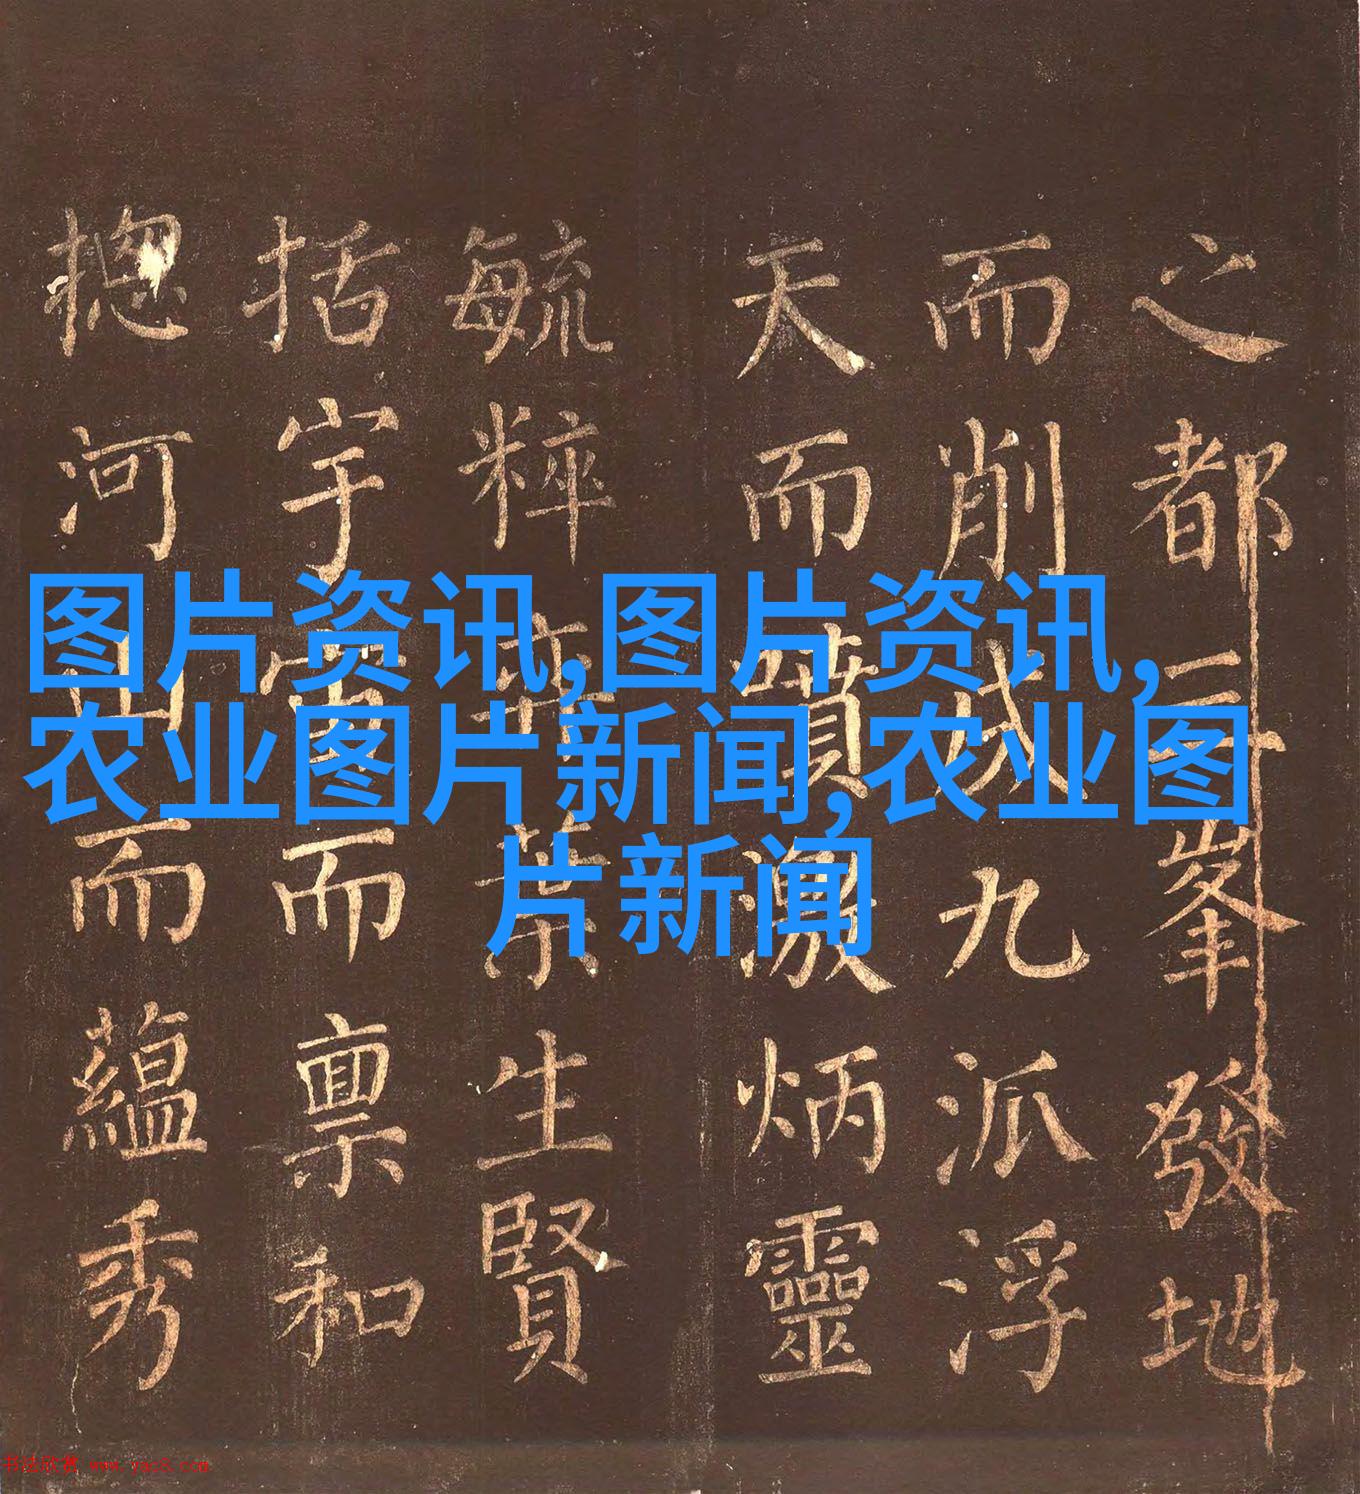 之都三峯發地
而削成九派浮
天而噴激炳靈
毓粹弈葉生賢
括宇宙而禀和
摠河山而蘊秀
图片资讯,图片资讯,
农业图片新闻,农业图
片新闻
书法欣赏 www.yac8.com